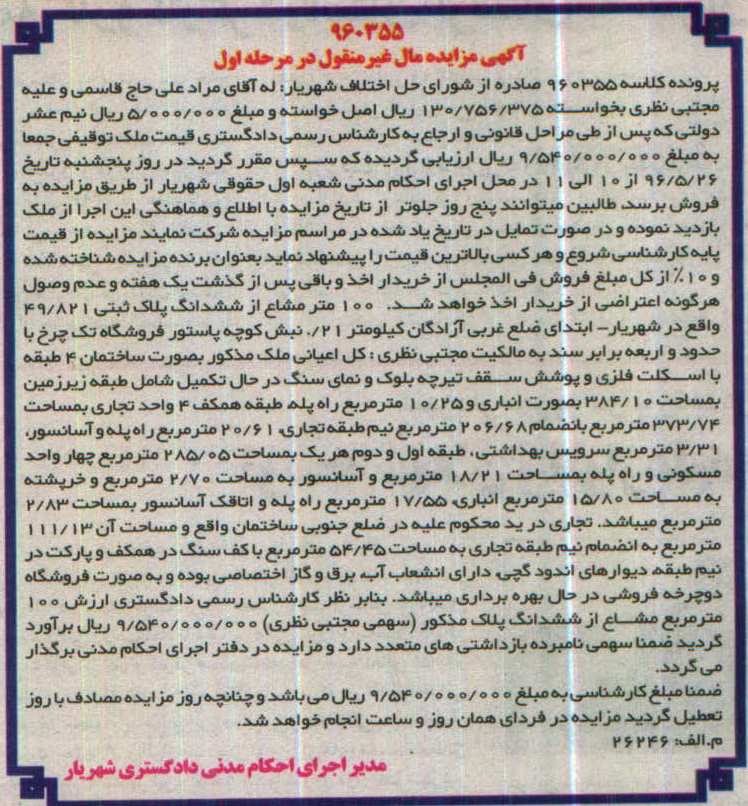 ۹۶۰۳۵۵
آگهی مزایده مال غیرمنقول در مرحله اول
پرونده کلاسه ۹۶۰۳۵۵ صادره از شورای حل اختلاف شهریار: له آقای مراد علی حاج قاسمی و علیه
مجتبی نظری بخواسته ۱۳۰/۷۵۶/۳۷۵ ریال اصل خواسته و مبلغ ۵/۰۰۰/۰۰۰ ریال نیم عشر
دولتی که پس از طی مراحل قانونی و ارجاع به کارشناس رسمی دادگستری قیمت ملک توقیفی جمعا
به مبلغ ۹/۵۴۰/۰۰۰/۰۰۰ ریال ارزیابی گردیده که سپس مقرر گردید در روز پنجشنبه تاریخ
۹۶/۵/۲۶ از ۱۰ الی ۱۱ در محل اجرای احکام مدنی شعبه اول حقوقی شهریار از طریق مزایده به
فروش برسد. طالبین میتوانند پنج روز جلوتر از تاریخ مزایده با اطلاع و هماهنگی این اجرا از ملک
بازدید نموده و در صورت تمایل در تاریخ یاد شده در مراسم مزایده شرکت نمایند مزایده از قیمت
پایه کارشناسی شروع و هر کسی بالاترین قیمت را پیشنهاد نماید بعنوان برنده مزایده شناخته شده
و ۱۰٪ از کل مبلغ فروش فی المجلس از خریدار اخذ و باقی پس از گذشت یک هفته و عدم وصول
هرگونه اعتراضی از خریدار اخذ خواهد شد. ۱۰۰ متر مشاع از ششدانگ پلاک ثبتی ۴۹/۸۲۱
واقع در شهریار- ابتدای ضلع غربی آزادگان کیلومتر ۲۱/. نبش کوچه پاستور فروشگاه تک چرخ با
حدود و اربعه برابر سند به مالکیت مجتبی نظری: کل اعیانی ملک مذکور بصورت ساختمان ۴ طبقه
با اسکلت فلزی و پوشش سقف تیرچه بلوک و نمای سنگ در حال تکمیل شامل طبقه زیرزمین
بمساحت ۳۸۴/۱۰ بصورت انباری و ۱۰/۲۵ مترمربع راه پله، طبقه همکف ۴ واحد تجاری بمساحت
۳۷۳/۷۴ مترمربع بانضمام ۲۰۶/۶۸ مترمربع نیم طبقه تجاری، ۲۰/۶۱ مترمربع راه پله و آسانسور،
۳/۳۱ مترمربع سرویس بهداشتی، طبقه اول و دوم هر یک بمساحت ۲۸۵/۰۵ مترمربع چهار واحد
مسکونی و راه پله بمساحت ۱۸/۲۱ مترمربع و آسانسور به مساحت ۲/۷۰ مترمربع و خرپشته
به مساحت ۱۵/۸۰ مترمربع انباری، ۱۷/۵۵ مترمربع راه پله و اتاقک آسانسور بمساحت ۲/۸۳
مترمربع میباشد. تجاری در ید محکوم علیه در ضلع جنوبی ساختمان واقع و مساحت آن ۱۱۱/۱۳
مترمربع به انضمام نیم طبقه تجاری به مساحت ۵۴/۴۵ مترمربع با کف سنگ در همکف و پارکت در
نیم طبقه، دیوارهای اندود گچی، دارای انشعاب آب، برق و گاز اختصاصی بوده و به صورت فروشگاه
دوچرخه فروشی در حال بهره برداری میباشد. بنابر نظر کارشناس رسمی دادگستری ارزش ۱۰۰
مترمربع مشاع از ششدانگ پلاک مذکور (سهمی مجتبی نظری) ۹/۵۴۰/۰۰۰/۰۰۰ ریال برآورد
گردید ضمنا سهمی نامبرده بازداشتی های متعدد دارد و مزایده در دفتر اجرای احکام مدنی برگذار
می گردد.
ضمنا مبلغ کارشناسی به مبلغ ۹/۵۴۰/۰۰۰/۰۰۰ ریال می باشد و چنانچه روز مزایده مصادف با روز
تعطیل گردید مزایده در فردای همان روز و ساعت انجام خواهد شد.
م.الف: ۲۶۲۴۶
مدیر اجرای احکام مدنی دادگستری شهریار